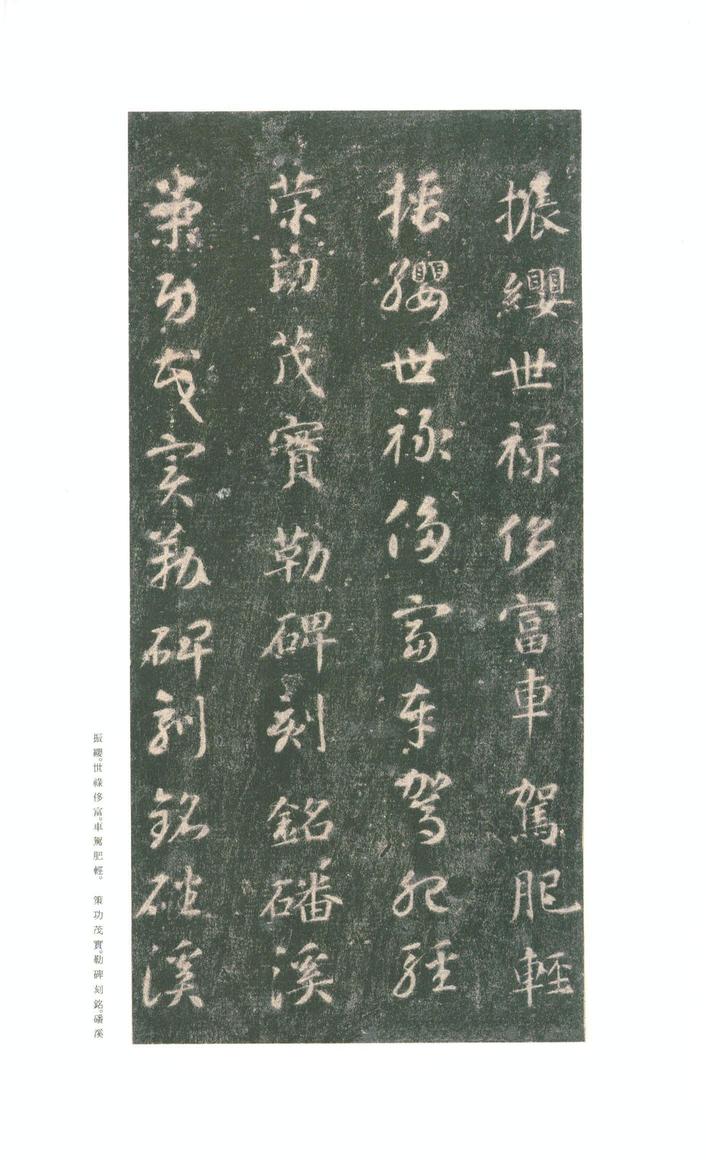 振纓世祿侈富車駕肥輕
振纓世祿侈富車駕肥輕
策功茂實勒碑刻銘磻溪
策功茂實勒碑刻銘磻溪
振纓。世祿侈富。車駕肥輕。 策功茂實。勒碑刻銘。磻溪